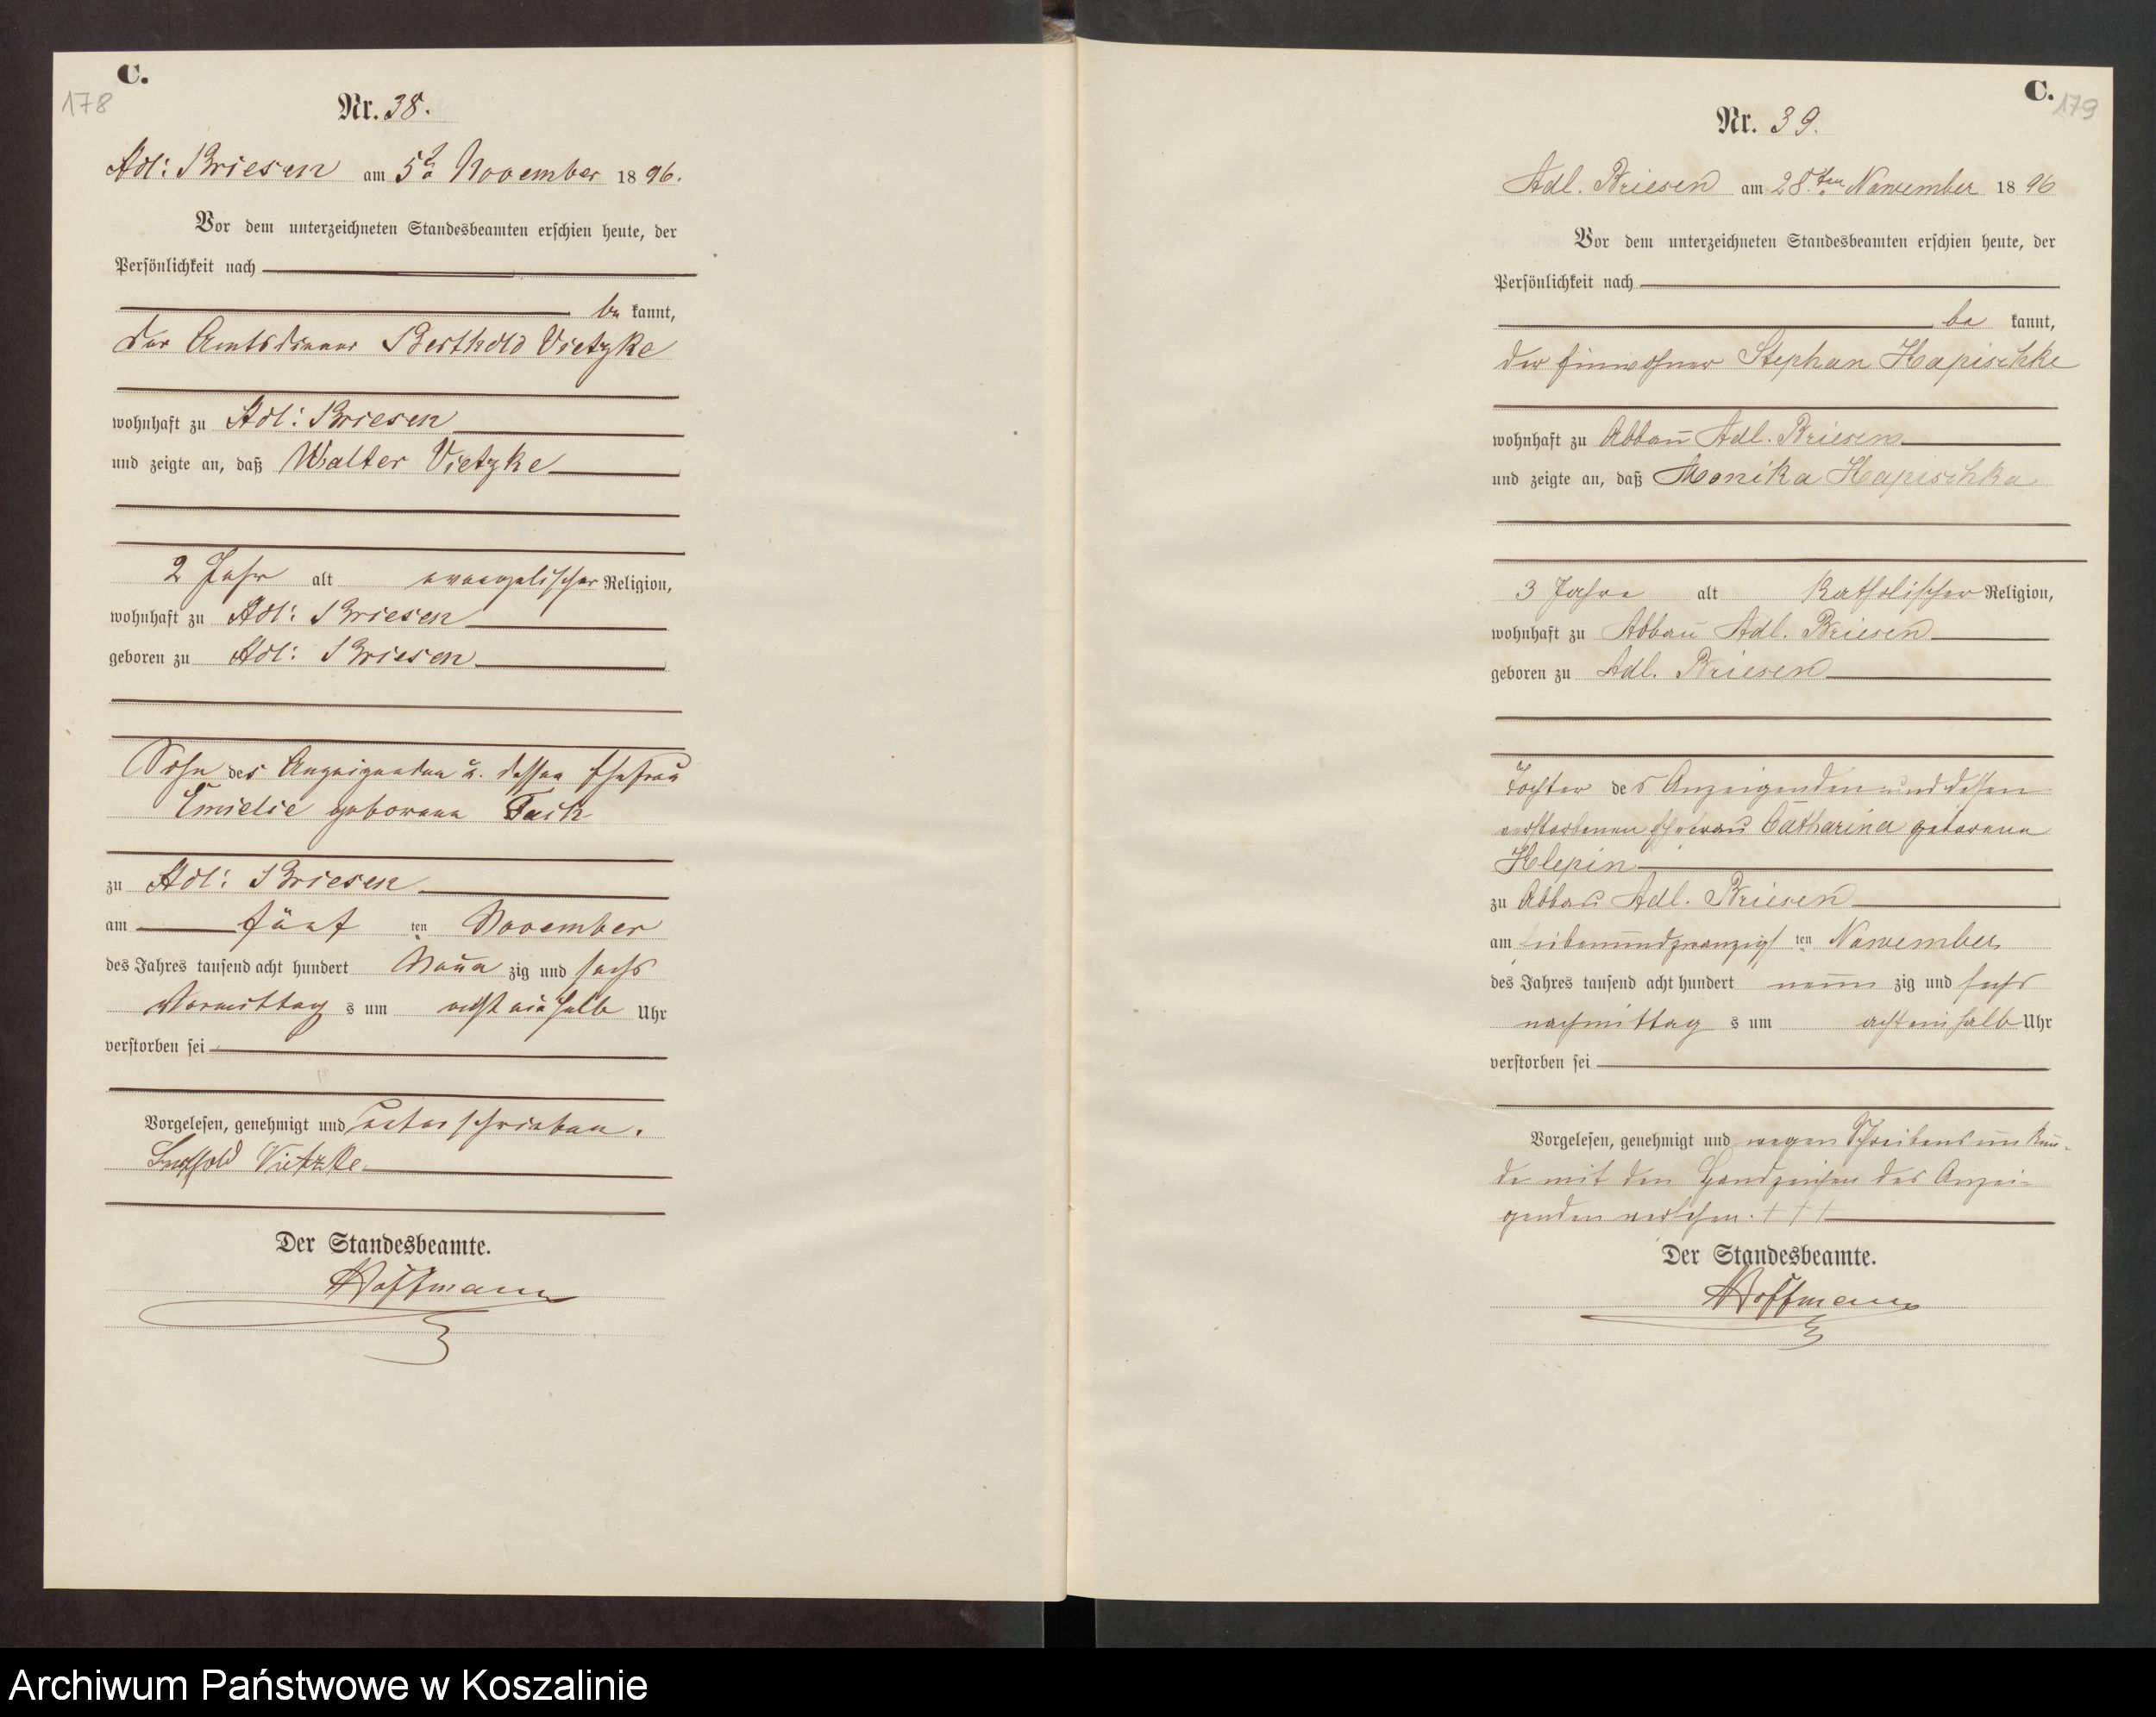 C.
178
Nr. 38.
Adl: Briesen am 5t November 1896.
Vor dem unterzeichneten Standesbeamten erschien heute, der
Persönlichkeit nach
be kannt,
der Amtsdiener Berthold Vietzke
wohnhaft zu Adl: Briesen
und zeigte an, daß Walter Vietzke
2 Jahr alt evangelischer Religion,
wohnhaft zu Adl: Briesen
geboren zu Adl: Briesen
Sohn des Anzeigenden u. dessen Ehefrau
Emielie geborene
zu Adl: Briesen
am fünf ten November
des Jahres tausend acht hundert Neun zig und sechs
Vormittag s um Uhr
verstorben sei
Vorgelesen, genehmigt und unterschrieben.
Berthold Vietzke
Der Standesbeamte.
Hoffmann
C.
179
Nr. 39.
Adl. Briesen am 28.ten November 1896
Vor dem unterzeichneten Standesbeamten erschien heute, der
Persönlichkeit nach
be kannt,
der Einwohner Stephan Hapischke
wohnhaft zu Abbau Adl. Briesen
und zeigte an, daß Monika Hapischka
3 Jahre alt katholischer Religion,
wohnhaft zu Abbau Adl. Briesen
geboren zu Adl. Briesen
Tochter des Anzeigenden und dessen
verstorbenen Ehefrau Catharina geborene
Klepin
zu Abbau Adl. Briesen
am siebenundzwanzig ten November
des Jahres tausend acht hundert neun zig und sechs
nachmittag s um achteinhalb Uhr
verstorben sei
Vorgelesen, genehmigt und wegen Schreibensunkun-
de mit den Handzeichen des Anzei-
genden versehen. +++
Der Standesbeamte.
Hoffmann
Archiwum Państwowe w Koszalinie